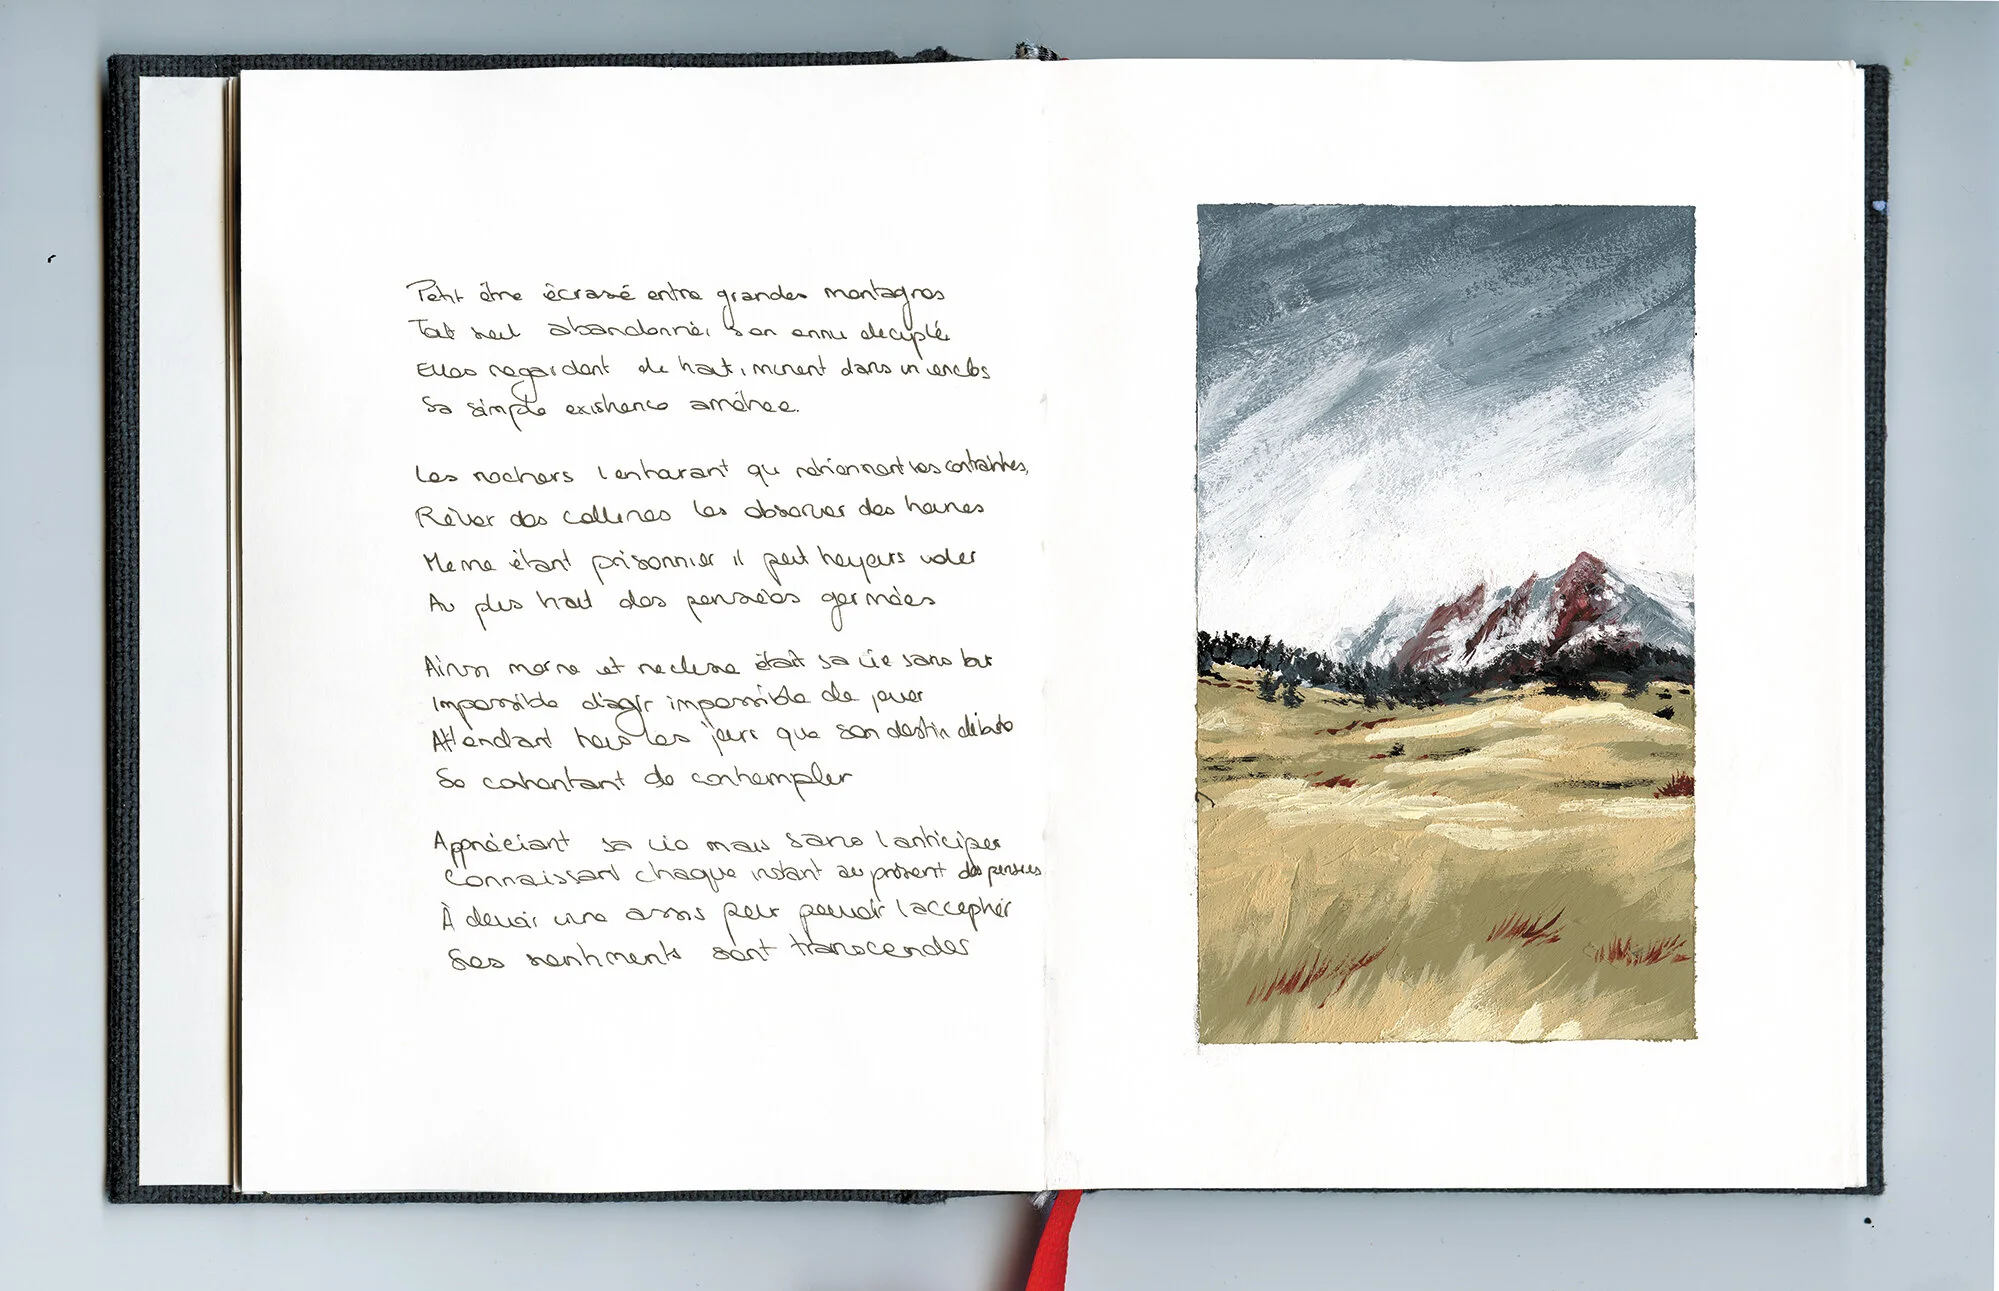 Petit être écrasé entre grandes montagnes
Tout seul abandonné, son ennui decuplé
Elles regardent de haut, murent dans un enclos
Sa simple existence
Les rochers l'entourant qui retiennent ses contraintes,
Rêver des collines les observer des heures
Meme étant prisonnier il peut toujours voler
Au plus haut des pensées germées
Ainsi morne et recluse était sa vie sans but
Impossible d'agir impossible de jouer
Attendant tous les jours que son destin débute
Se contentant de contempler
Appréciant sa vie mais sans l'anticiper
Connaissant chaque instant au présent des pensées
À devoir vivre assis pour pouvoir l'accepter
Ses sentiments sont transcendes